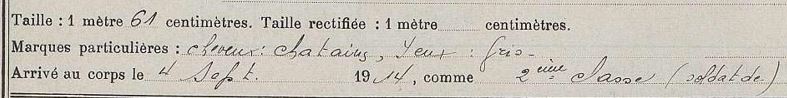 Taille : 1 mètre 61 centimètres. Taille rectifiée : 1 mètre centimètres.
Marques particulières : cheveux : chatains, Yeux : gris -
Arrivé au corps le 4 Sept. 1914, comme 2ème classe (soldat de)